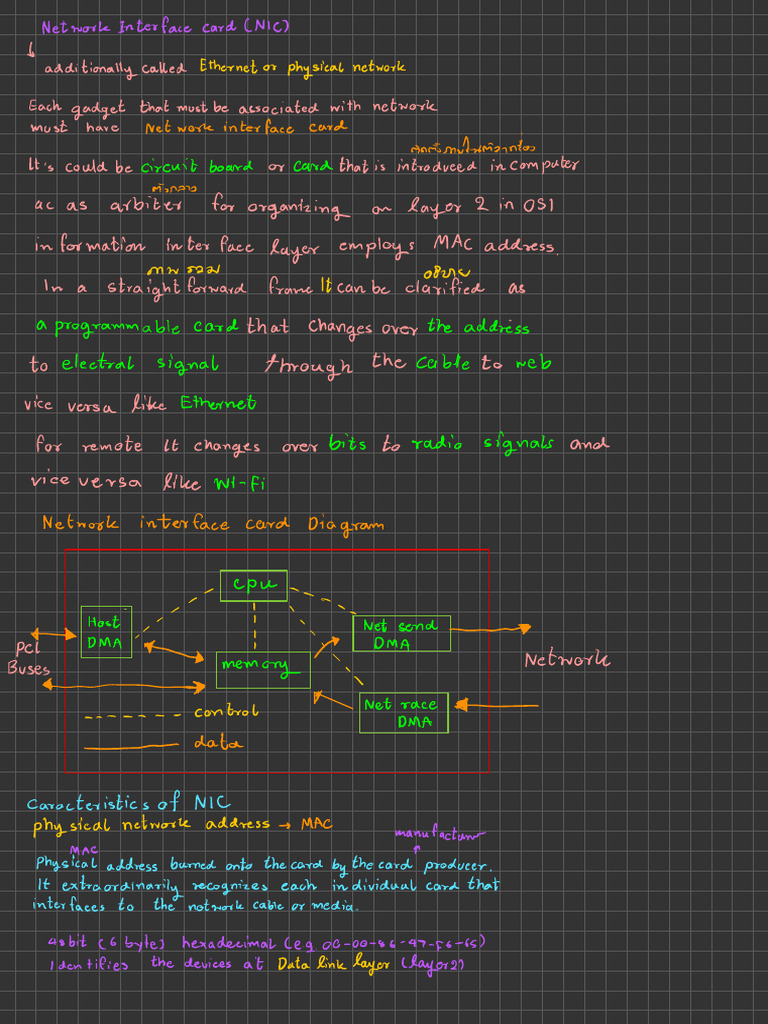 Network Interface card (NIC)
additionally called Ethernet or physical network
Each gadget that must be associated with network
must have Network interface card
It's could be circuit board or card that is introduced in computer
ตัวกลาง
ac as arbiter for organizing on layer 2 in OSI
information interface layer employs MAC address.
ภาพรวม อธิบาย
In a straight forward frame It can be clarified as
a programmable card that changes over the address
to electral signal through the cable to web
vice versa like Ethernet
for remote It changes over bits to radio signals and
vice versa like Wi-Fi
Network interface card Diagram
cpu
Host
DMA
Net send
DMA
PCI
Buses
memory
Network
Net race
DMA
control
data
Caracteristics of NIC
physical network address → MAC
manufacture
MAC
Physical address burned onto the card by the card producer.
It extraordinarily recognizes each individual card that
interfaces to the notwork cable or media.
48bit (6 byte) hexadecimal (eg.
Identifies the devices at Data link layer (layer2)